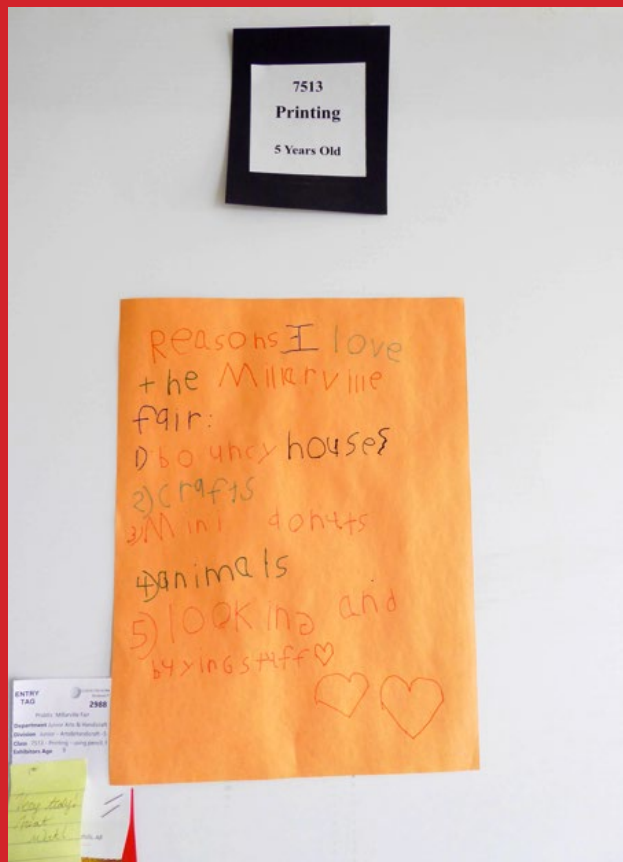 7513
Printing
5 Years Old
Reasons I love
the Millarville
fair:
1) bouncy houses
2) crafts
3) Mini donuts
4) animals
5) looking and
buying stuff ♡
ENTRY
TAG
2988
Priddis Millarville Fair
Department Junior Arts & Handicraft
Division Junior - Arts&Handicraft -5
Class 7513 - Printing - using pencil, f
Exhibitors Age
Very tidy!
Great
work!